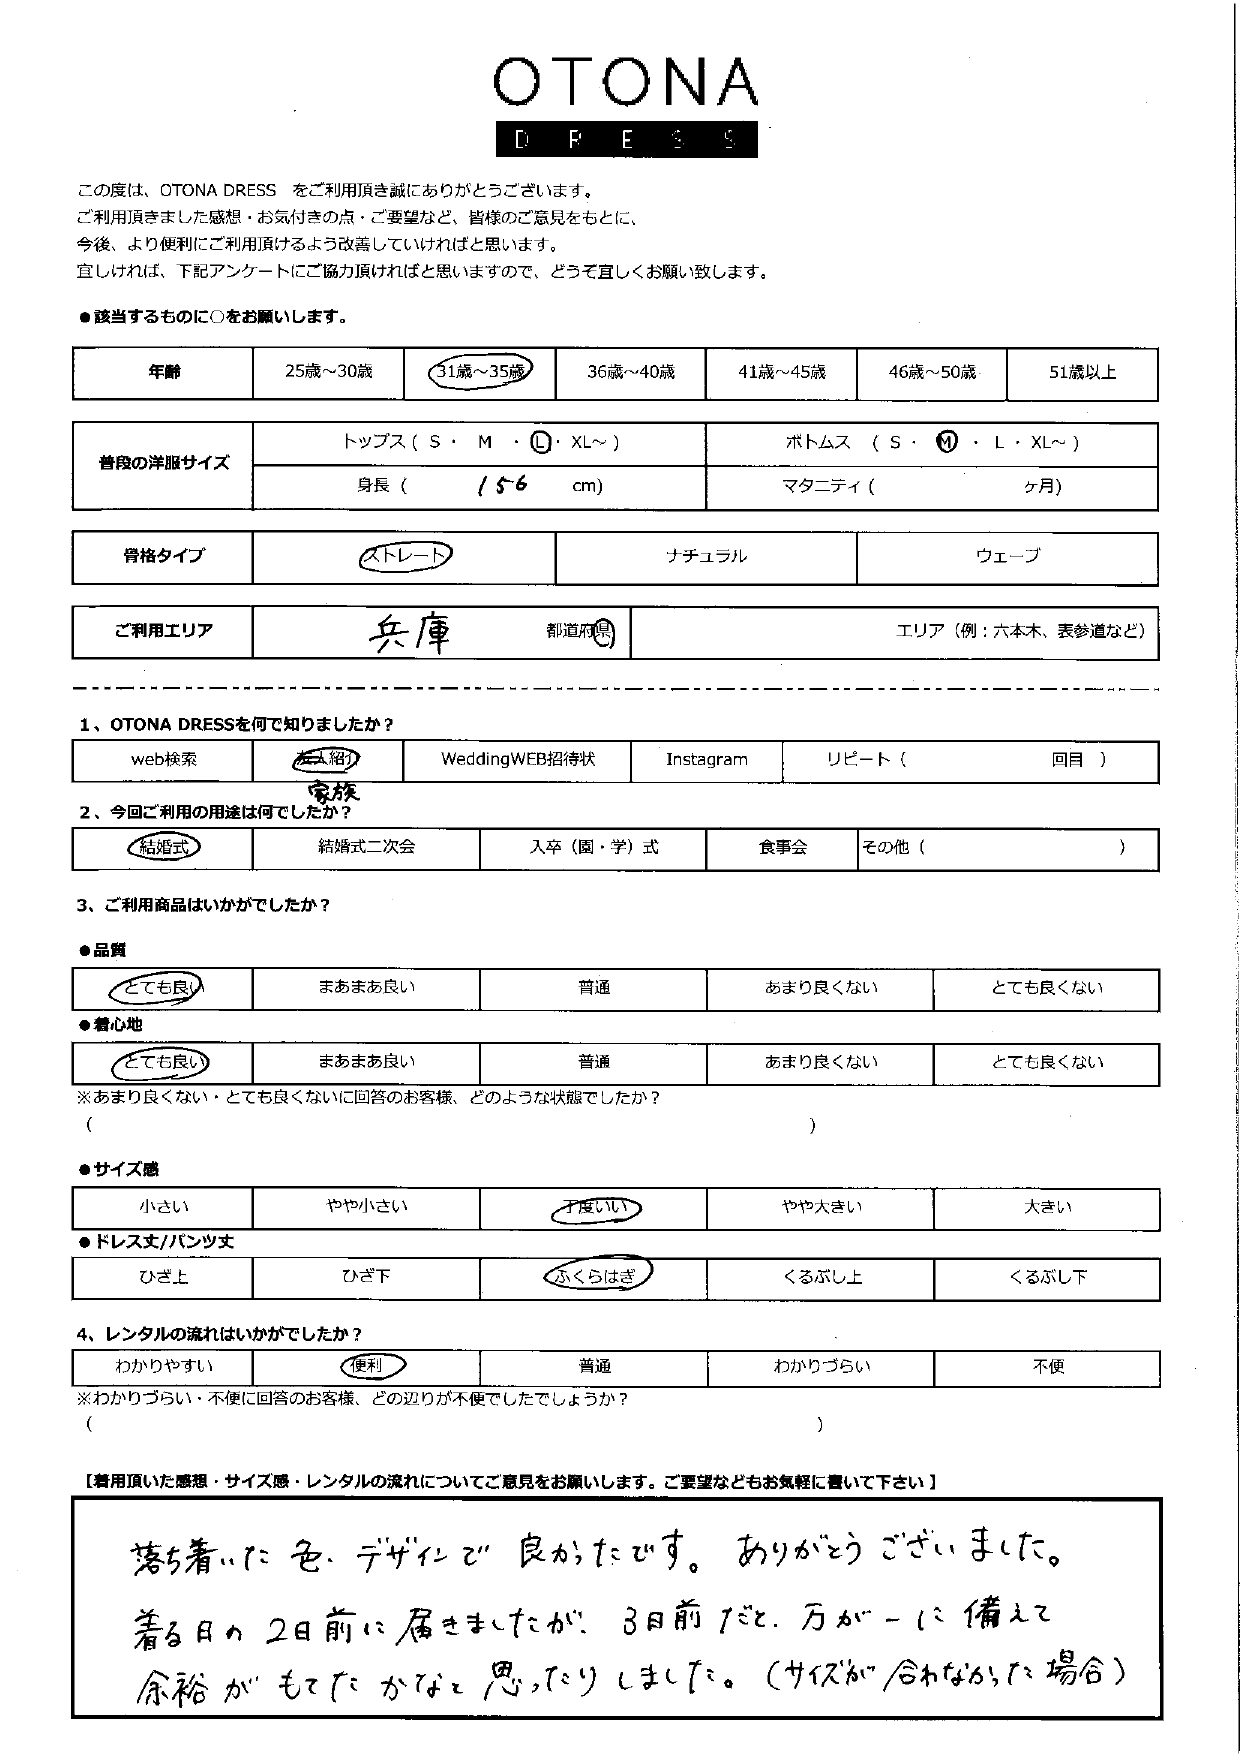 OTONA
DRESS
この度は、OTONA DRESS をご利用頂き誠にありがとうございます。
ご利用頂きました感想・お気付きの点・ご要望など、皆様のご意見をもとに、
今後、より便利にご利用頂けるよう改善していければと思います。
宜しければ、下記アンケートにご協力頂ければと思いますので、どうぞ宜しくお願い致します。
●該当するものに○をお願いします。
年齢 25歳～30歳 31歳～35歳 36歳～40歳 41歳～45歳 46歳～50歳 51歳以上
普段の洋服サイズ
トップス ( S ・ M ・ L ・ XL～ ) ボトムス ( S ・ M ・ L ・ XL～ )
身長 ( 156 cm) マタニティ ( ヶ月)
骨格タイプ ストレート ナチュラル ウェーブ
ご利用エリア 兵庫 都道府県 エリア（例：六本木、表参道など）
1、OTONA DRESSを何で知りましたか？
web検索 友人紹介 WeddingWEB招待状 Instagram リピート ( 回目 )
家族
2、今回ご利用の用途は何でしたか？
結婚式 結婚式二次会 入卒（園・学）式 食事会 その他 ( )
3、ご利用商品はいかがでしたか？
●品質
とても良い まあまあ良い 普通 あまり良くない とても良くない
●着心地
とても良い まあまあ良い 普通 あまり良くない とても良くない
※あまり良くない・とても良くないに回答のお客様、どのような状態でしたか？
( )
●サイズ感
小さい やや小さい 丁度いい やや大きい 大きい
●ドレス丈/パンツ丈
ひざ上 ひざ下 ふくらはぎ くるぶし上 くるぶし下
4、レンタルの流れはいかがでしたか？
わかりやすい 便利 普通 わかりづらい 不便
※わかりづらい・不便に回答のお客様、どの辺りが不便でしたでしょうか？
( )
【着用頂いた感想・サイズ感・レンタルの流れについてご意見をお願いします。ご要望などもお気軽に書いて下さい 】
落ち着いた色、デザインで良かったです。ありがとうございました。
着る日の2日前に届きましたが、3日前だと、万が一に備えて
余裕がもてたかなと思ったりしました。（サイズが合わなかった場合）